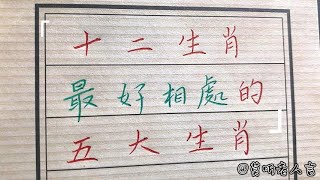 十二生肖
最好相處的
五大生肖
@貨听老人言